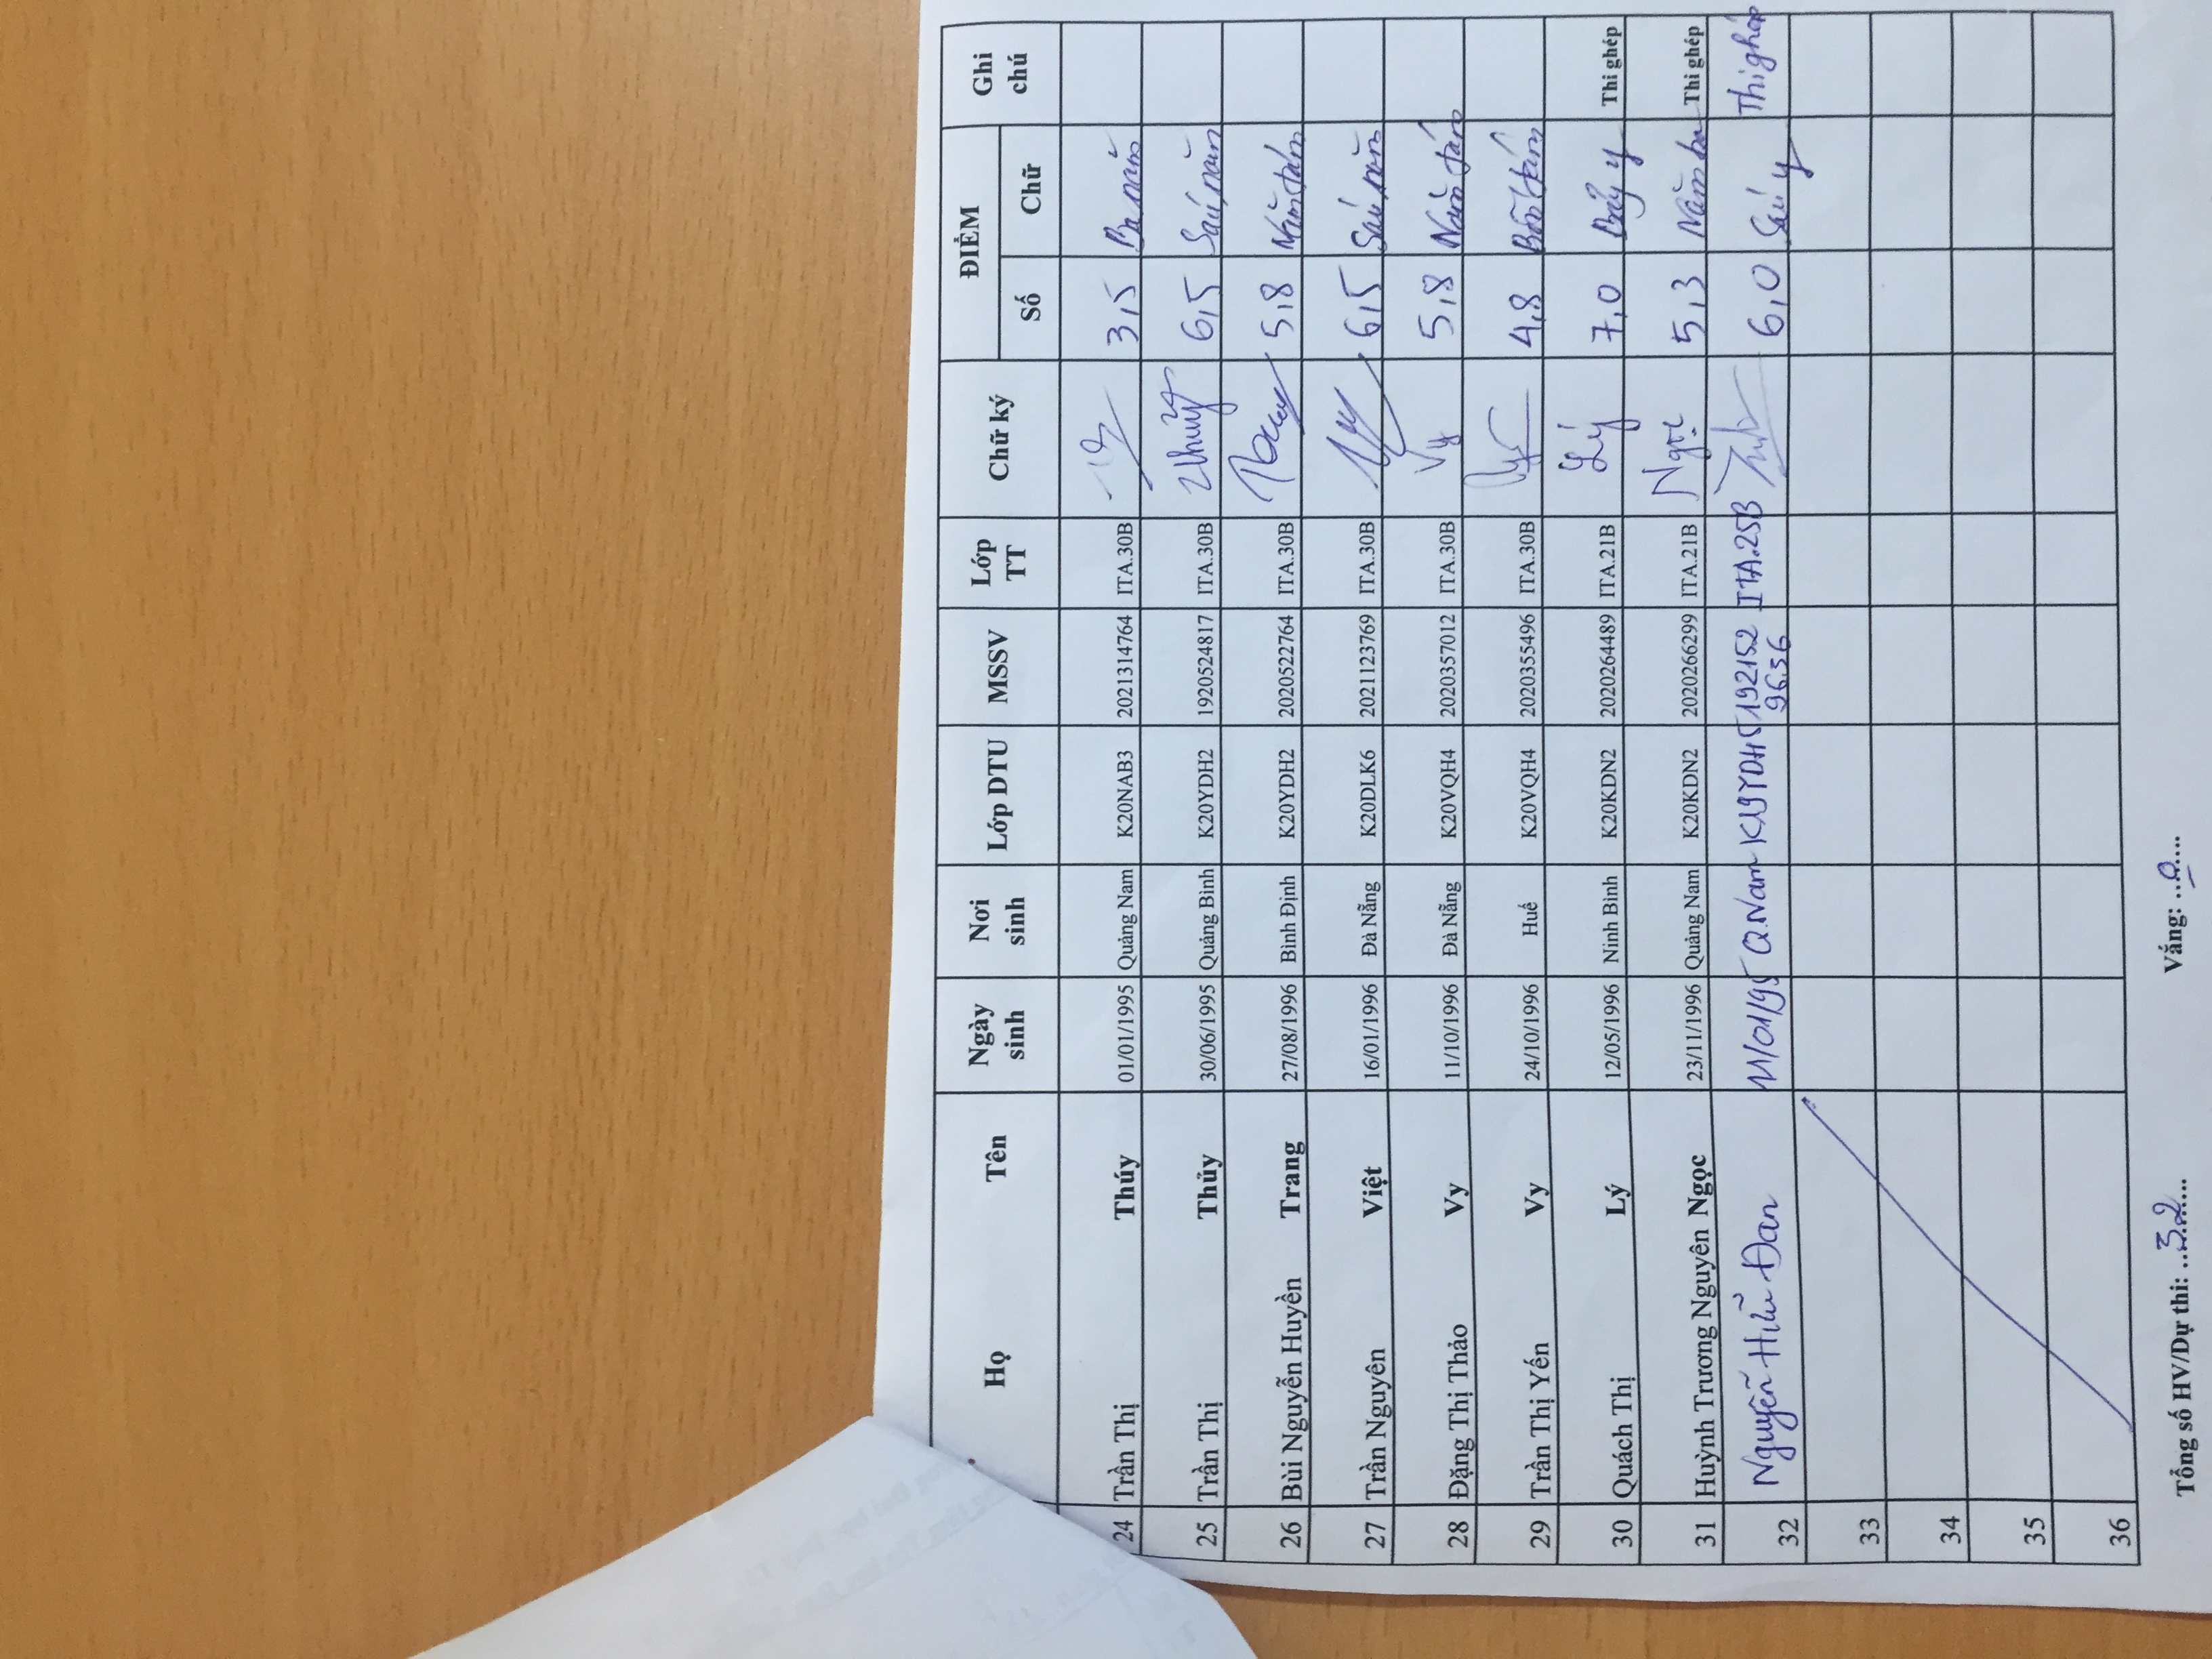 Họ Tên Ngày sinh Nơi sinh Lớp DTU MSSV Lớp TT Chữ ký ĐIỂM Ghi chú
Số Chữ
24 Trần Thị Thúy 01/01/1995 Quảng Nam K20NAB3 2021314764 ITA.30B 3,5 Ba năm
25 Trần Thị Thủy 30/06/1995 Quảng Bình K20YDH2 1920524817 ITA.30B Thủy 6,5 Sáu năm
26 Bùi Nguyễn Huyền Trang 27/08/1996 Bình Định K20YDH2 2020522764 ITA.30B 5,8 Năm tám
27 Trần Nguyên Việt 16/01/1996 Đà Nẵng K20DLK6 2021123769 ITA.30B 6,5 Sáu năm
28 Đặng Thị Thảo Vy 11/10/1996 Đà Nẵng K20VQH4 2020357012 ITA.30B Vy 5,8 Năm tám
29 Trần Thị Yến Vy 24/10/1996 Huế K20VQH4 2020355496 ITA.30B 4,8 Bốn tám
30 Quách Thị Lý 12/05/1996 Ninh Bình K20KDN2 2020264489 ITA.21B Lý 7,0 Bảy y Thi ghép
31 Huỳnh Trương Nguyên Ngọc 23/11/1996 Quảng Nam K20KDN2 2020266299 ITA.21B Ngọc 5,3 Năm ba Thi ghép
32 Nguyễn Hữu Đan 11/01/95 Q.Nam K19YDH5 192152 ITA.25B 6,0 Sáu y Thi ghép
9656
33
34
35
36
Tổng số HV/Dự thi: ..32.... Vắng: ..0....